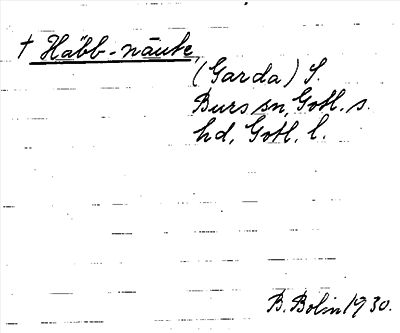 † Häbb-näute
(Garda) S.
Burs sn, Gotl. s.
hd, Gotl. l.
B. Bolin 1930.